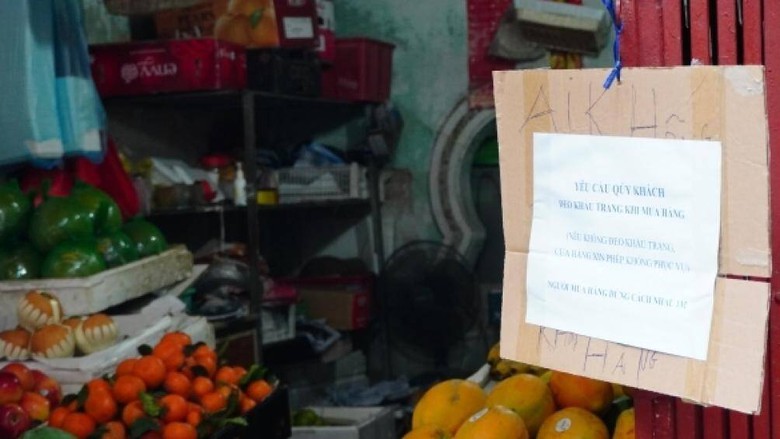 envy
AI K HÔNG
YÊU CẦU QUÝ KHÁCH
ĐEO KHẨU TRANG KHI MUA HÀNG
(NẾU KHÔNG ĐEO KHẨU TRANG,
CỬA HÀNG XIN PHÉP KHÔNG PHỤC VỤ)
NGƯỜI MUA HÀNG ĐỨNG CÁCH NHAU 1M
HANG